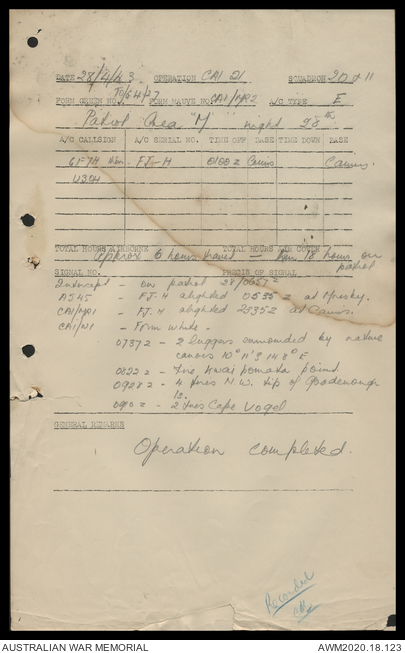 DATE 28/4/43 OPERATION CAI 21 SQUADRON 20 & 11
FORM GREEN NO. FORM MAUVE NO. CAI/MR2 A/C TYPE E
Patrol Area "M" night 28th
A/C CALLSIGN A/C SERIAL NO. TIME OFF BASE TIME DOWN BASE
FJ-H 0100z Cairns Cairns.
TOTAL HOURS AIRBORNE TOTAL HOURS AIR COVER
Approx 6 hours travel 18 hours on
patrol
SIGNAL NO. PRECIS OF SIGNAL
Intercept - on patrol 28/0657z
AJ45 - FJ.H alighted 0535z at Moresby.
CAI/MO1 - FJ.H alighted 2535z at Cairns.
CAI/W1 - Form white -
0737z - 2 luggers surrounded by native
canoes 10° 11'S 148° E
0822z - point
0928z - 4 N.W. tip of Goodenough
Is.
0902 - 2 Cape Vogel
GENERAL REMARKS
Operation completed.
Recorded
AUSTRALIAN WAR MEMORIAL AWM2020.18.123